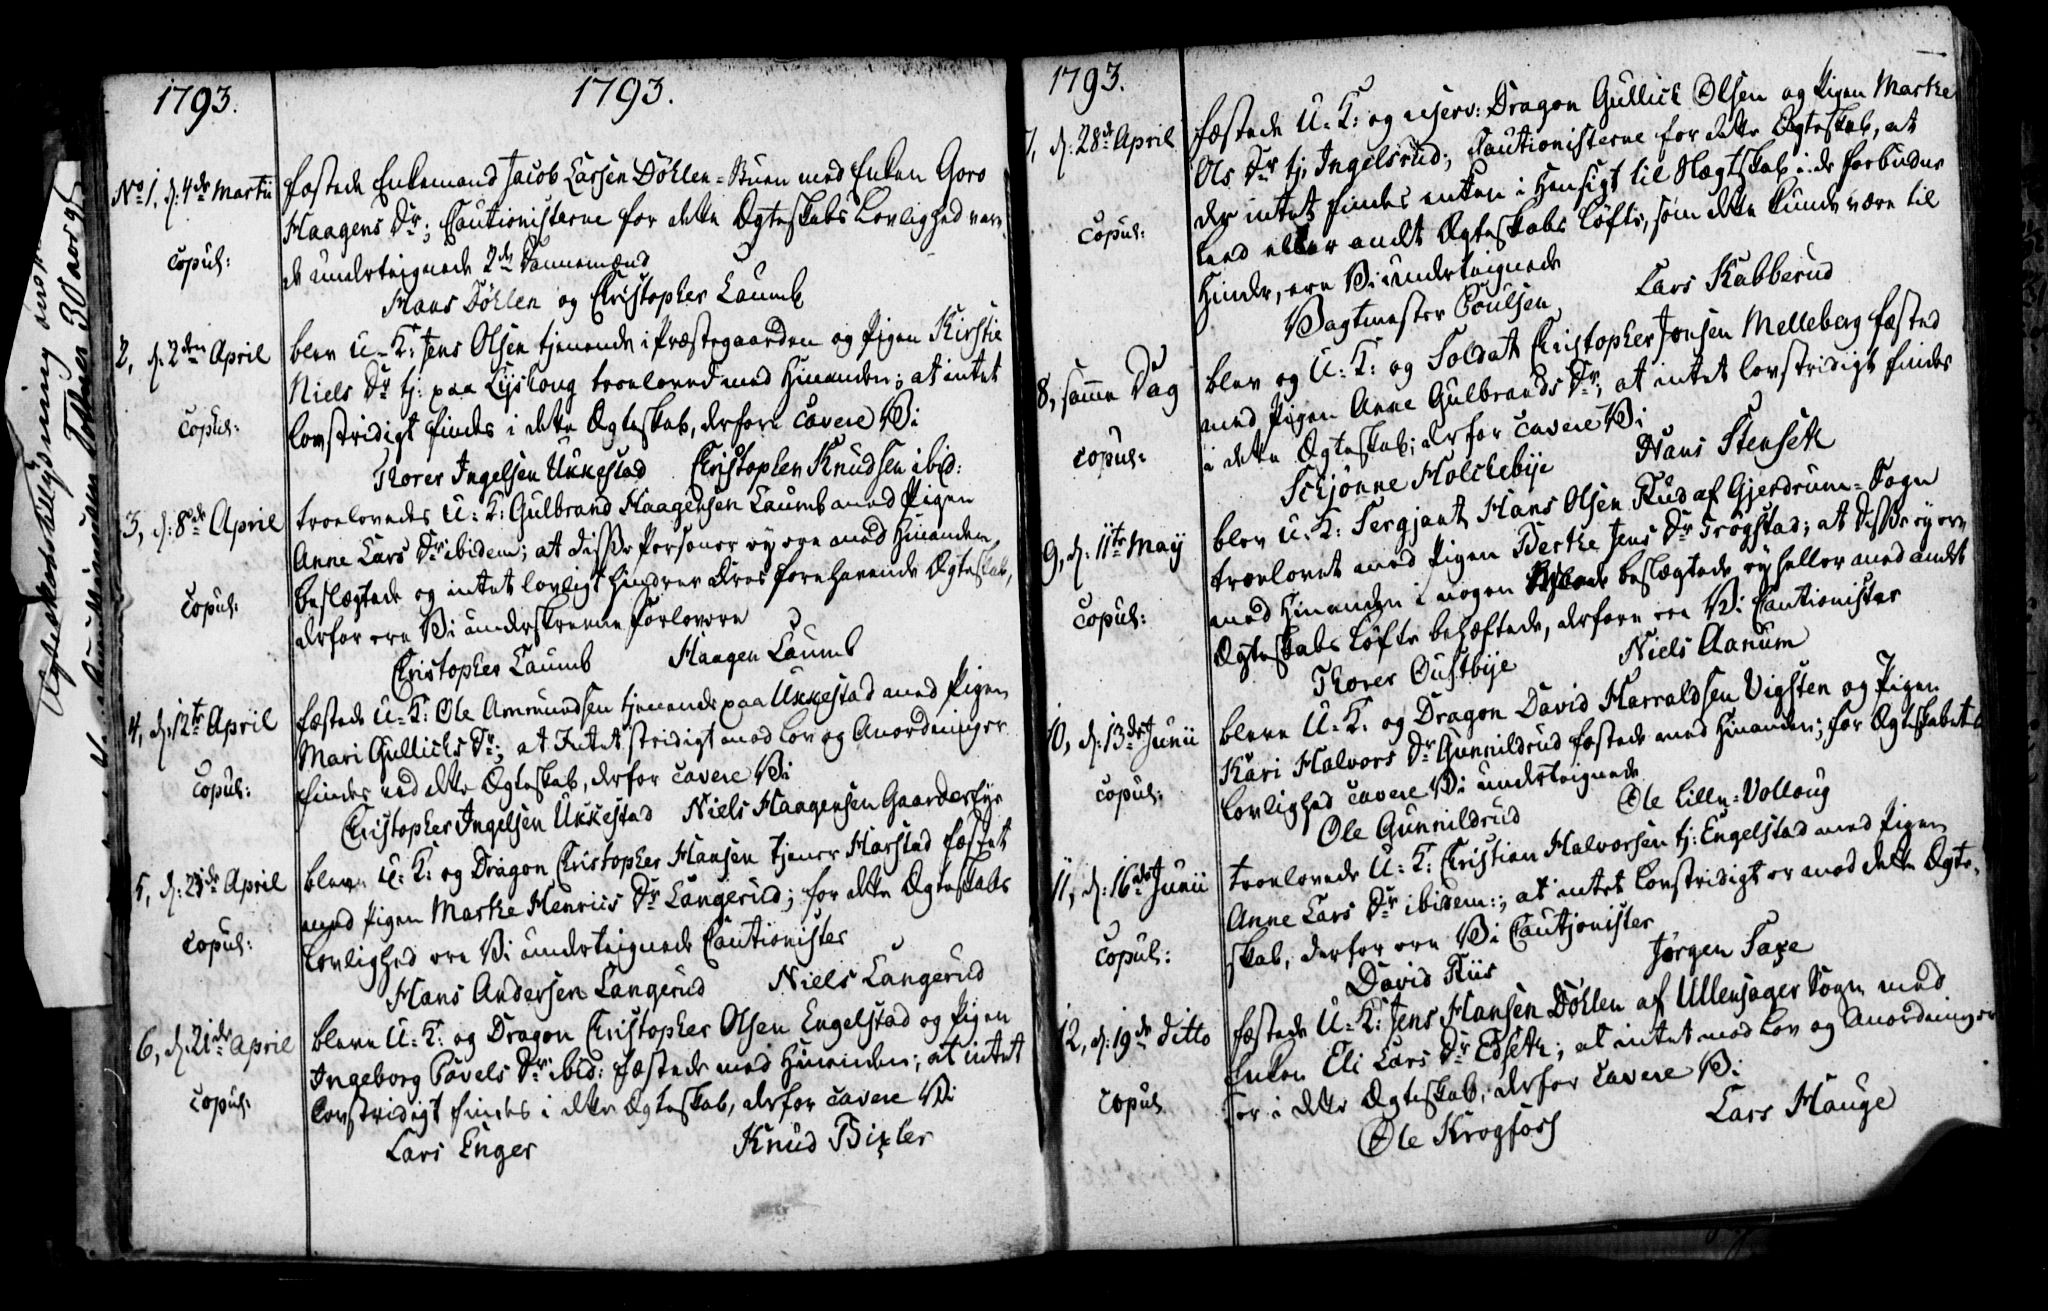 1793.
1793.
No 1, d: 4de Martii
fæstede Enkemand Jacob Larsen Döhlen-Stuen med Enken Goro
Haagens Dr; Cautionisterne for dette Ægteskabs Lovlighed vare
copul:
de underteignede 2de Dannemænd
Hans Döhlen og Christopher Laumb
2, d: 2den April
blev U-K: Jens Olsen tjenende i Præstegaarden og Pigen Kirstie
Niels Dr tj: paa Lysloug troelovet med hinanden; at intet
copul:
lovstridigt findes i dette Ægteskab, derfore cavere Vi
Thorer Ingelsen Ukkestad Christopher Knudsen ibid:
3, d: 8de April
troelovedes U-K: Gulbrand Haagensen Laumb med Pigen
Anne Lars Dr ibidem; at disse Personer ey ere med hinanden
copul:
beslægtede og intet lovligt hindrer deres forehavende Ægteskab,
derfor ere Vi underskrevne Forlovere
Christopher Laumb Haagen Laumb
4, d: 12te April
fæstede U-K: Ole Ammundsen tjenende paa Ukkestad med Pigen
Mari Gullichs Dr; at Intet stridigt mod Lov og Anordninger
copul:
findes ved dette Ægteskab, derfor cavere Vi
Christopher Ingelsen Ukkestad Niels Haagensen Gaarderbye
5, d: April
bleve U-K: og Dragon Christopher Hansen tjener Harstad fæstet
med Pigen Marthe Henriis Dr Langerud; for dette Ægteskabs
copul:
Lovlighed ere Vi underteignede Cautionister
Hans Andersen Langerud Niels Langerud
6, d: 21de April
bleve U-K: og Dragon Christopher Olsen Engelstad og Pigen
Ingeborg Povels Dr ibid: fæstede med hinanden; at intet
copul:
lovstridigt findes i dette Ægteskab, derfor cavere Vi
Lars Enger Knud Bixler
1793.
7, d: 28de April
fæstede U-K: og reserv: Dragon Gullick Olsen og Pigen Marthe
Ols Dr tj. Ingelsrud; Cautionisterne for dette Ægteskab, at
copul:
der intet findes enten i Hensigt til Slægtskab i de forbudne
Leed eller andet Ægteskabs Löfte, som dette kunde være til
Hinder, ere Vi underteignede
Vagtmester Poulsen Lars Kabberud
8, samme Dag
blev og U-K: og Soldat Christopher Jonsen Melleberg fæsted
med Pigen Anne Gulbrands Dr; at intet lovstridigt findes
copul:
i dette Ægteskab; derfor cavere Vi
Schjönne Holchebye Hans Stenseth
9, d: 11te May
blev U-K: Sergjant Hans Olsen Rud af Gjerdrum-Sogn
troelovet med Pigen Berthe Jens Dr Trögstad; at disse ey ere
copul:
med hinanden i nogen beslægtede ey heller med andet
Ægteskabs Löfte behæftede, derfore ere Vi Cautionister
Thorer Oustbye Niels Aanum
10, d: 13de Junii
bleve U-K: og Dragon David Harraldsen Vigsten og Pigen
Kari Halvors Dr Gunnildrud fæstede med hinanden; for Ægteskabets
copul:
Lovlighed cavere Vi underteignede
Ole Gunnildrud Ole Lille-Volloug
11, d: 16de Junii
troelovede U-K: Christian Halvorsen tj: Engelstad med Pigen
Anne Lars Dr ibidem:; at intet lovstridigt er mod dette Ægte-
copul:
skab, derfor ere Vi Cautjonister
David Riis Jørgen Saxe
12, d: 19de ditto
fæstede U-K: Jens Hansen Döhlen af Ullensager Sogn med
Enken Eli Lars Dr Edseth; at intet mod Lov og Anordninger
copul
er i dette Ægteskab, derfor cavere Vi
Ole Krogfoss Lars Hauge